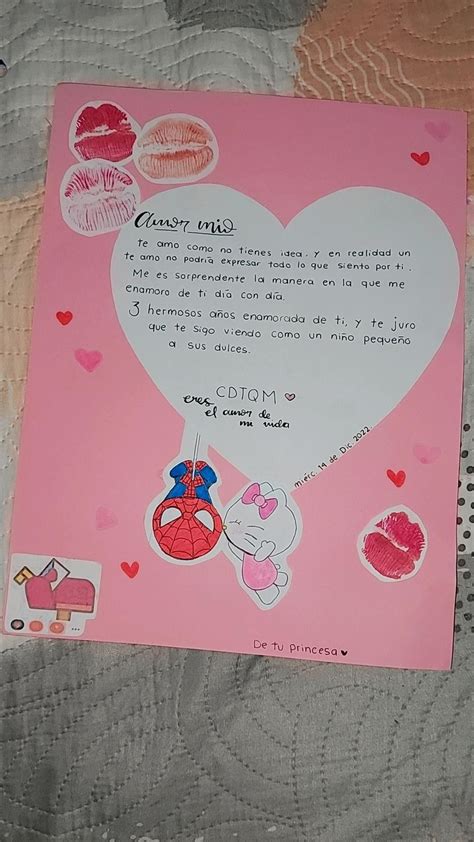 Amor mio
te amo como no tienes idea, y en realidad un
te amo no podría expresar todo lo que siento por ti.
Me es sorprendente la manera en la que me
enamoro de ti día con día.
3 hermosos años enamorada de ti, y te juro
que te sigo viendo como un niño pequeño
a sus dulces.
CDTQM
eres
el amor de
mi vida
miérc. 14 de Dic. 2022
De tu princesa